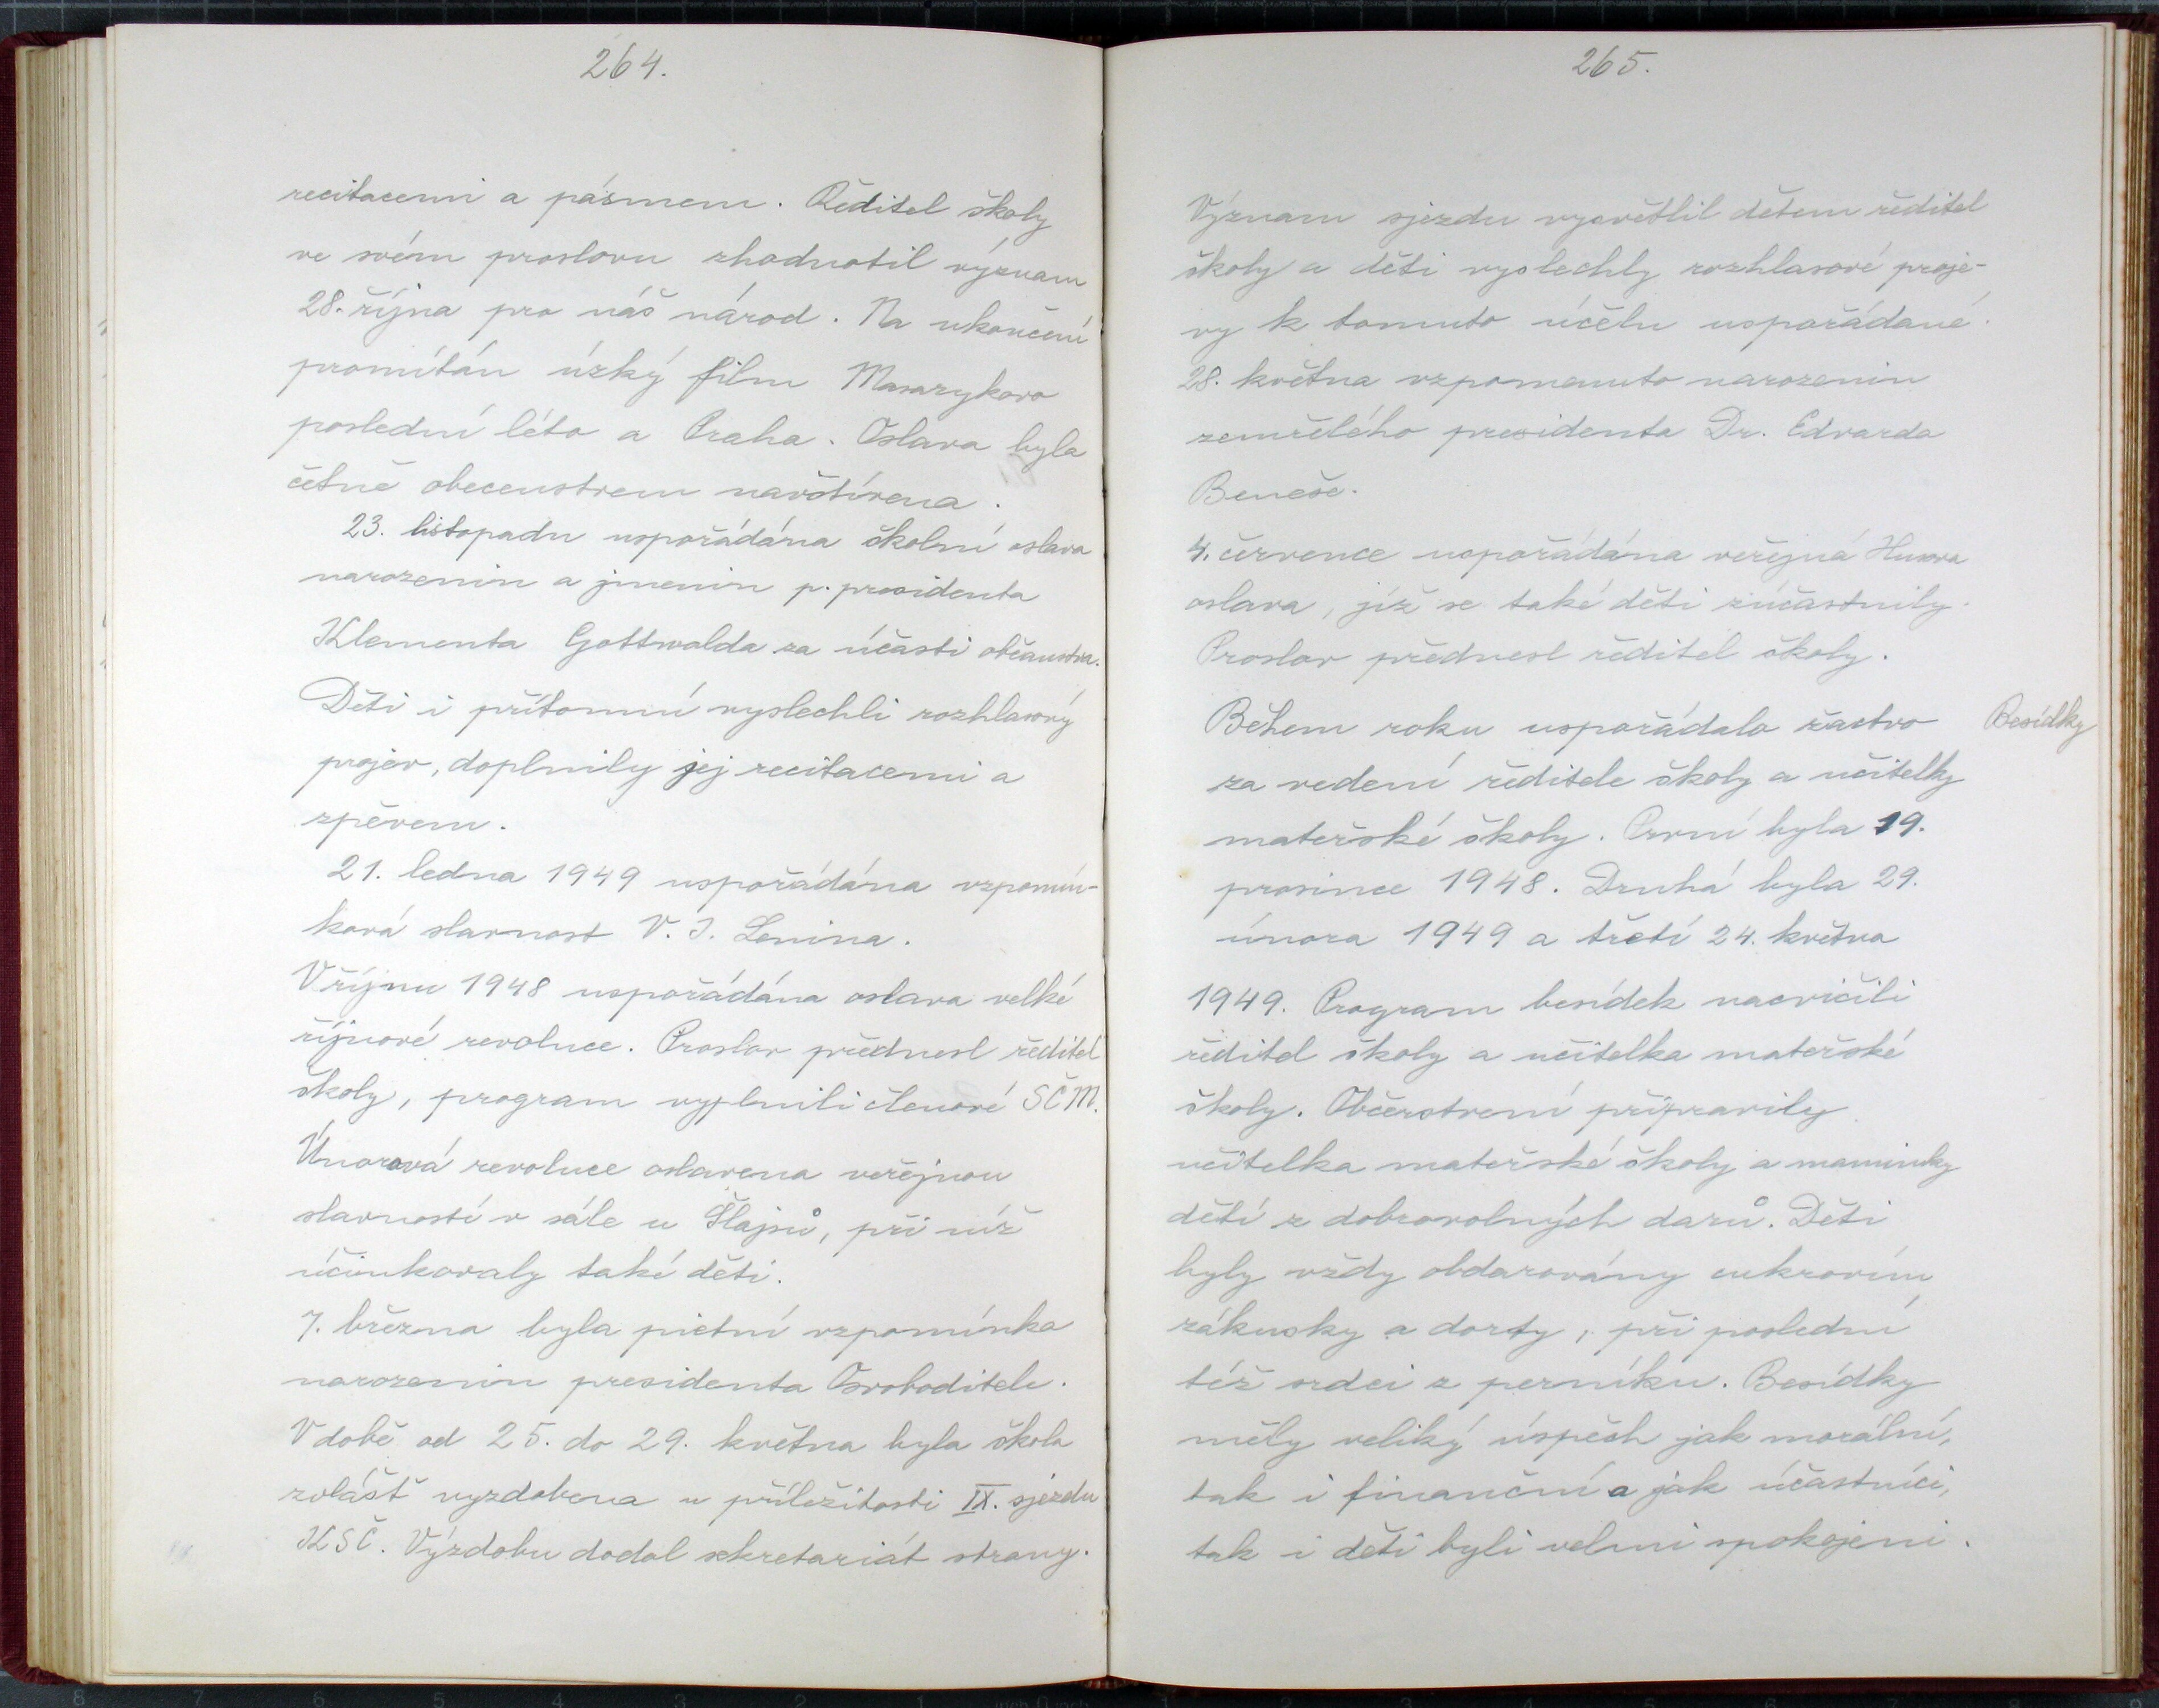 264.
recitacemi a pásmem. Ředitel školy
ve svém proslovu zhodnotil význam
28. října pro náš národ. Na ukončení
promítán úzký film Masarykovo
poslední léto a Praha. Oslava byla
četně obecenstvem navštívena.
23. listopadu uspořádána školní oslava
narozenin a jmenin p. presidenta
Klementa Gottwalda za účasti občanstva.
Děti i přítomní vyslechli rozhlasový
projev, doplnily jej recitacemi a
zpěvem.
21. ledna 1949 uspořádána vzpomín-
ková slavnost V. I. Lenina.
V říjnu 1948 uspořádána oslava velké
říjnové revoluce. Proslov přednesl ředitel
školy, program vyplnili členové SČM.
Únorová revoluce oslavena veřejnou
slavností v sále u Šlajsů, při níž
účinkovaly také děti.
7. března byla pietní vzpomínka
narozenin presidenta Osvoboditele.
V době od 25. do 29. května byla škola
zvlášť vyzdobena u příležitosti IX. sjezdu
KSČ. Výzdobu dodal sekretariát strany.
265.
Význam sjezdu vysvětlil dětem ředitel
školy a děti vyslechly rozhlasové proje-
vy k tomuto účelu uspořádané.
28. května vzpomenuto narozenin
zemřelého presidenta Dr. Edvarda
Beneše.
4. července uspořádána veřejná Husova
oslava, jíž se také děti zúčastnily.
Proslov přednesl ředitel školy.
Během roku uspořádalo žactvo
Besídky
za vedení ředitele školy a učitelky
mateřské školy. První byla 19.
prosince 1948. Druhá byla 29.
února 1949 a třetí 24. května
1949. Program besídek nacvičili
ředitel školy a učitelka mateřské
školy. Občerstvení připravily
učitelka mateřské školy a maminky
dětí z dobrovolných darů. Děti
byly vždy obdarovány cukrovím,
zákusky a dorty, při poslední
též srdci z perníku. Besídky
měly veliký úspěch jak morální,
tak i finanční a jak účastníci,
tak i děti byli velmi spokojeni.